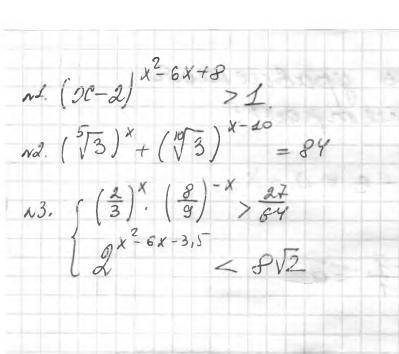 №1. (x-2)^(x²-6x+8) > 1.
№2. (⁵√3)^x + (¹⁰√3)^(x-10) = 84
№3. { (2/3)^x · (8/9)^(-x) > 27/64
2^(x²-6x-3,5) < 8√2